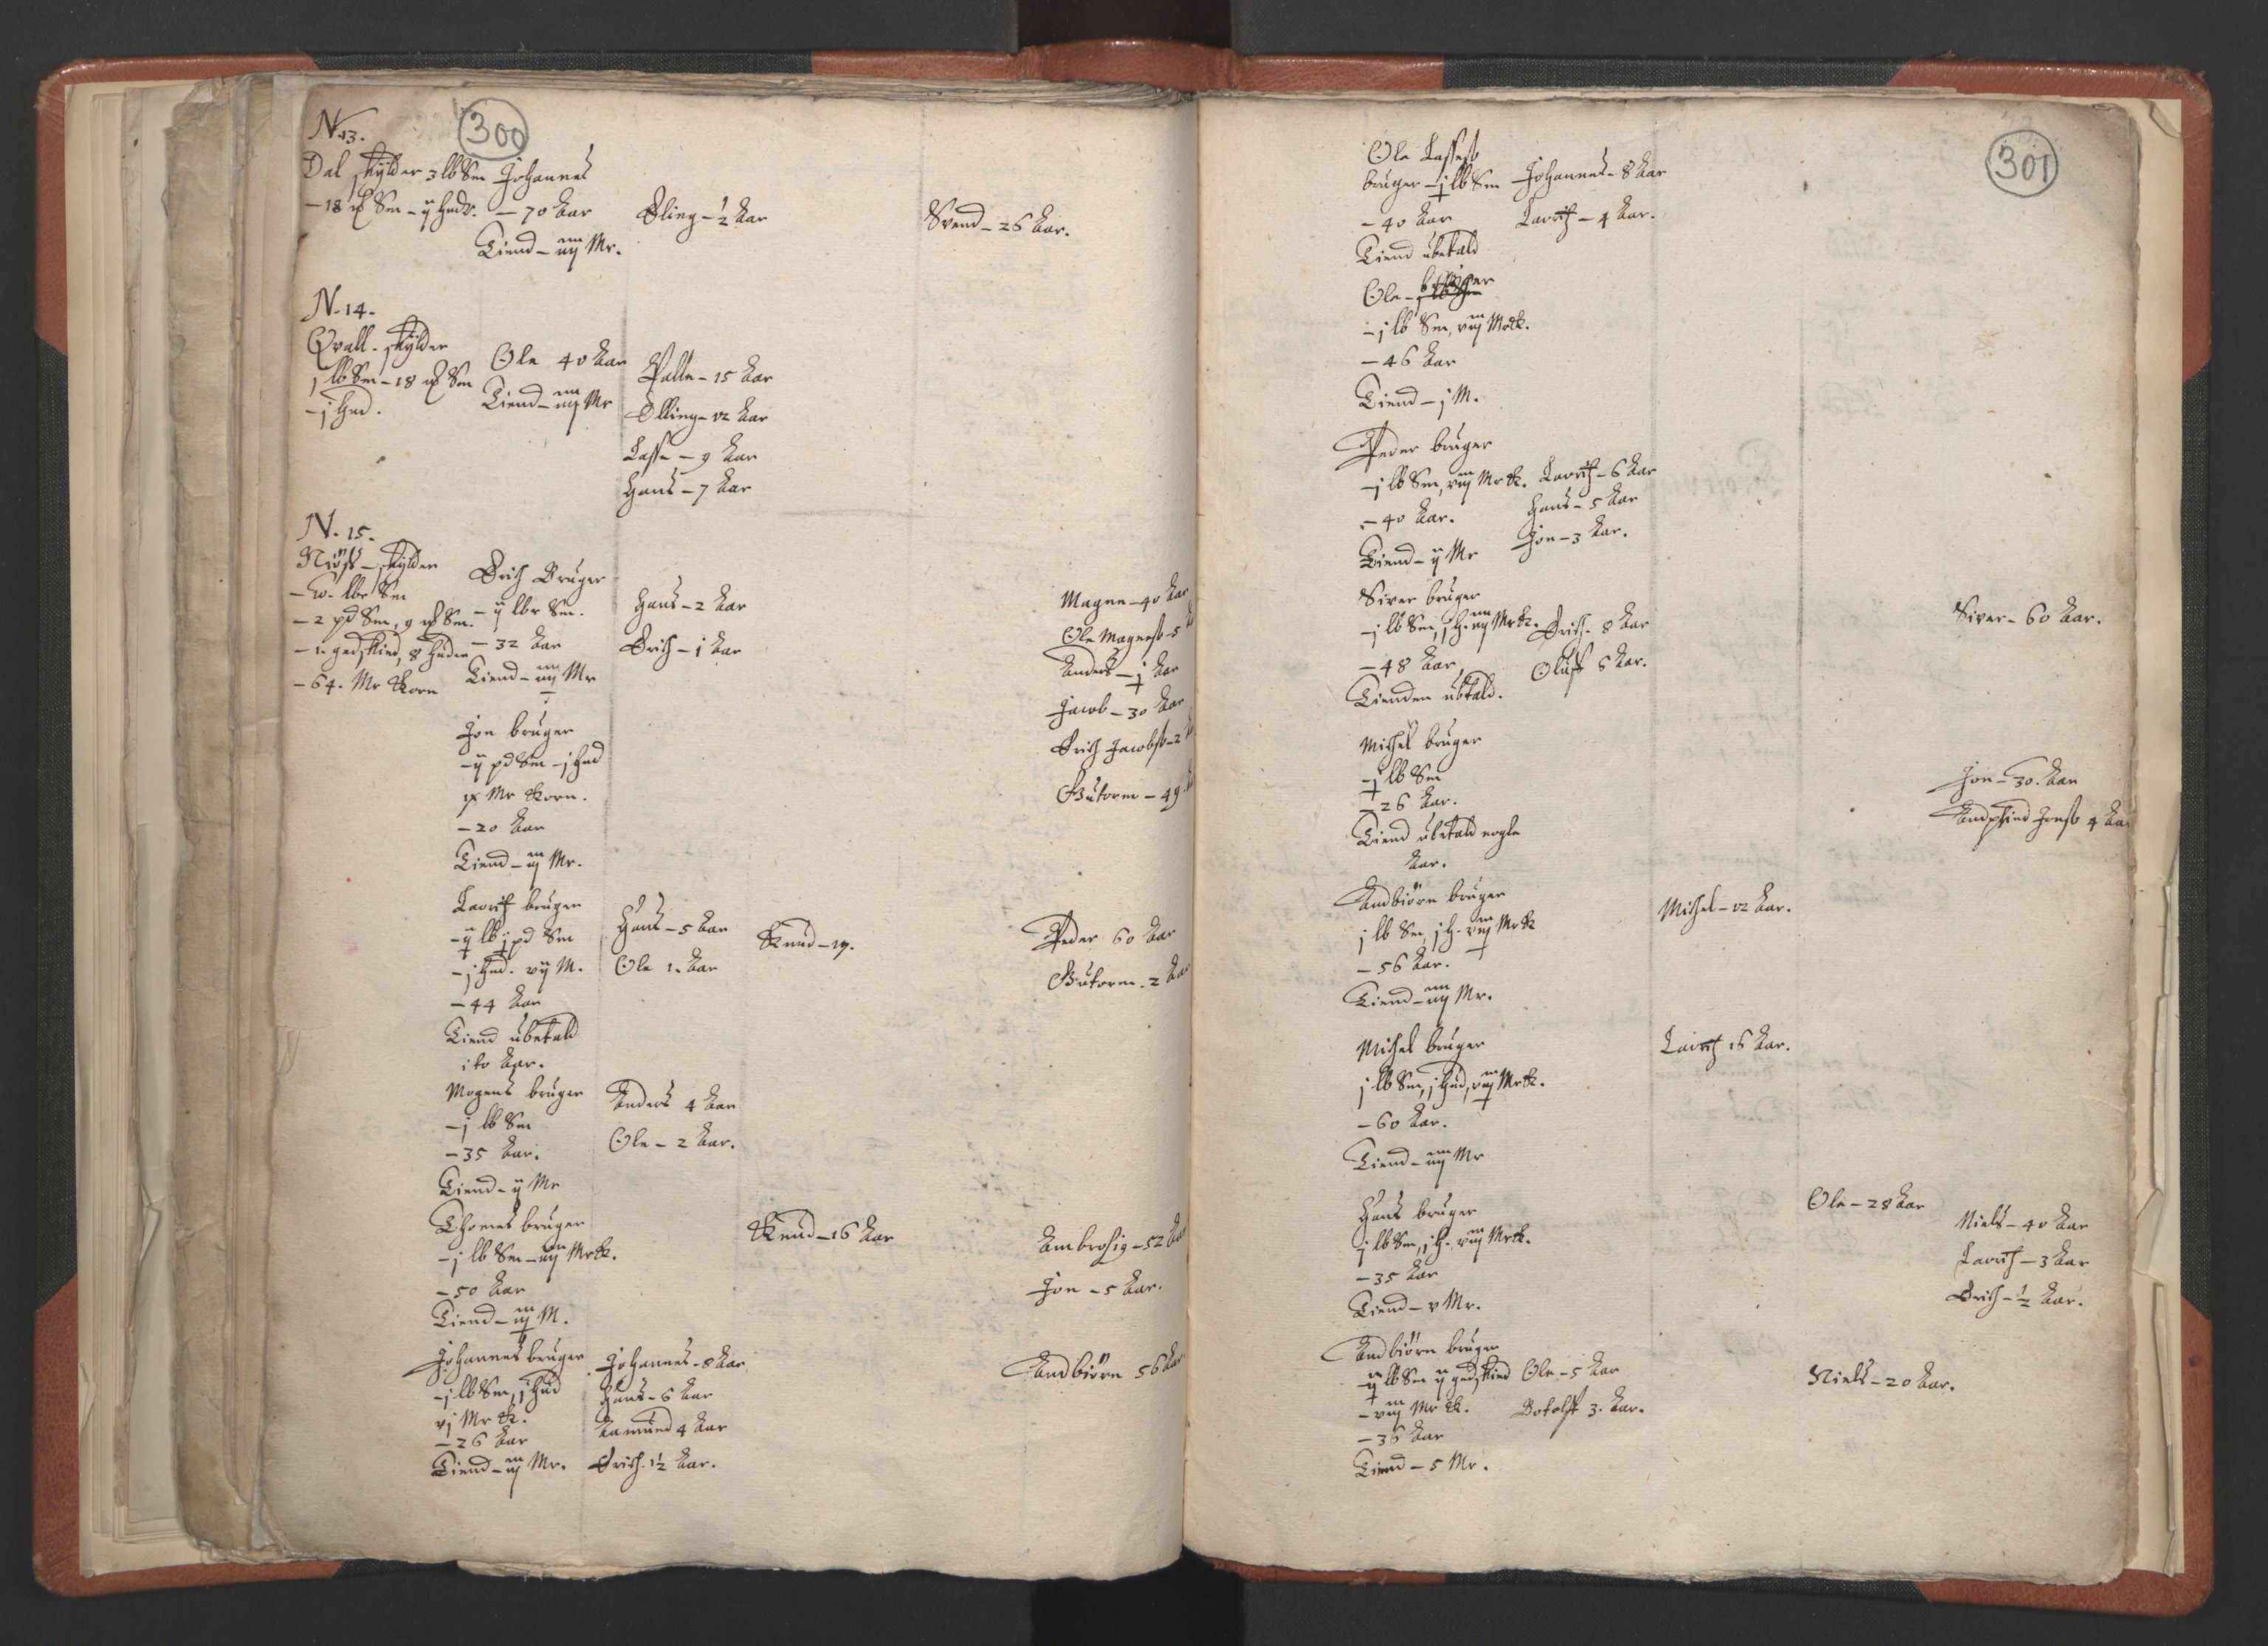 300
N. 13.
Dal skylder 3 lb Sm
- 18 mk Sm - ij hudr.
Johannes
- 70 Aar
Tiend - iiij Mr.
Elling - ½ Aar
Svend - 26 Aar.
N. 14.
Qvall. skylder
j lb Sm - 18 mk Sm
- j hud.
Ole 40 Aar
Tiend - iiij Mr
Palle - 15 Aar
Elling - 12 Aar
Lasse - 9 Aar
Hans - 7 Aar
N. 15.
Niøss - skylder
- 10. lbr Sm
- 2 pd Sm, 9 mk Sm.
- 1. gedskind, 8 huder
- 64. Mr Korn
Erich Bruger
- ij lbr Sm.
- 32 Aar
Tiend - iiij Mr
Hans - 2 Aar
Erich - j Aar
Magne - 40 Aar
Ole Magness - 5
Anders - j Aar
Jacob - 30 Aar
Erich Jacobss - 2
Gutorm - 49
Jon bruger
- ij pd Sm - j hud
ix Mr Korn.
- 20 Aar
Tiend - iij Mr.
Lavritz bruger
- ij lb j pd Sm
- j hud. vij M.
- 44 Aar
Tiend ubetald
i to Aar.
Hans - 5 Aar
Ole 1. Aar
Knud - 17.
Peder 60 Aar
Gutorm. 2 Aar
Mogens bruger
- j lb Sm
- 35 Aar.
Tiend - ij Mr
Anders 4 Aar
Ole - 2 Aar.
Thomes bruger
- j lb Sm - iiij Mr K.
- 50 Aar
Tiend - iij M.
Knud - 16 Aar
Ambrosig - 52 Aar
Jon - 5 Aar.
Johannes bruger
- j lb Sm, j hud
vj Mr K.
- 26 Aar
Tiend - iij Mr.
Johannes - 8 Aar
Hans - 6 Aar
Aamund 4 Aar
Erich. 1½ Aar.
Andbiørn 56 Aar
301
Ole Lassess
bruger - j lb Sm
- 40 Aar
Tiend ubetald
Johannes - 8 Aar
Lavritz - 4 Aar.
Ole - bruger
- j lb Sm, viij Mr K.
- 46 Aar
Tiend - j M.
Peder bruger
- j lb Sm, viij Mr K.
- 40 Aar.
Tiend - ij Mr
Lavritz - 6 Aar
Hans - 5 Aar
Jon - 3 Aar.
Siver bruger
- j lb Sm, j h. iiij Mr K.
- 48 Aar
Tienden ubtald.
Erich. 8 Aar
Oluff 6 Aar.
Siver - 60 Aar.
Michel bruger
- j lb Sm
- 26 Aar.
Tiend ubetald nogle
Aar.
Jon - 30. Aar
Jonss 4 Aar
Andbiørn bruger
j lb Sm, j h. viij Mr K
- 56 Aar.
Tiend - iiij Mr.
Michel - 12 Aar.
Michel bruger
j lb Sm, j hud, viij Mr K.
- 60 Aar.
Tiend - iiij Mr
Lavritz 16 Aar.
Hans bruger
j lb Sm, j h. viij Mr K.
- 35 Aar
Tiend - v Mr.
Ole - 28 Aar
Niels - 40 Aar
Lavritz - 3 Aar
Erich - ½ Aar.
Andbiørn bruger
- ij lb Sm ij gedskind
- viij Mr K.
- 36 Aar
Tiend - 5 Mr.
Ole - 5 Aar
Botolff 3. Aar.
Niels - 20 Aar.